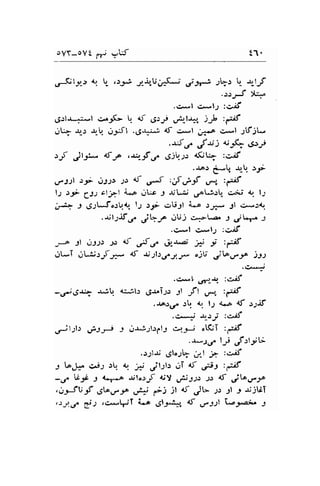 ۴۶۰ کتاب نهم ۵۷۴-۵۷۳
گراید یا دچار شهوتی تسکین‌ناپذیر شود، یا به دیوانگی
مبتلا گردد.
گفت: راست است.
گفتم: طرز پیدایش فردی که با حکومت استبدادی
سازگار است همین است که شنیدی. اکنون باید دید چنان
فردی چگونه زندگی می‌کند.
گفت: چنانکه دربازی می‌گویند، هرکه سئوالی کرد
خود باید پاسخ دهد.
گفتم: پس گوش‌کن: کسی که در درون خود اروس
را به تخت پادشاهی نشاند و عنان همهٔ اجزاء روح خود را
به‌دست او سپرد همهٔ اوقات خود را به‌باده‌گساری و جشن
و مهمانی و مصاحبت زنان هرجائی می‌گذراند.
گفت: راست است.
گفتم: تو نیز تصدیق می‌کنی که در درون او هر
روز هوس‌هائی تازه سربرمی‌دارند که سیرکردنشان آسان
نیست.
گفت: بدیهی است.
گفتم: پس اگر او درآمدی داشته باشد چندی‌نمی‌-
گذرد که همه را به باد می‌دهد.
گفت: تردید نیست.
گفتم: آنگاه نوبت وام‌دارشدن و فروش دارائی
خانوادگی فرا می‌رسد.
گفت: جز این چاره‌ای ندارد.
گفتم: وقتی که آن دارائی نیز به باد رفت میل‌ها و
هوس‌هائی که در درونش لانه کرده‌اند همهمه و غوغا می‌-
آغازند و او در حالی که از زخم نیش هوس‌های گوناگون،
و مخصوصاً اروس که پیشوای همهٔ آنهاست، رنج می‌برد،